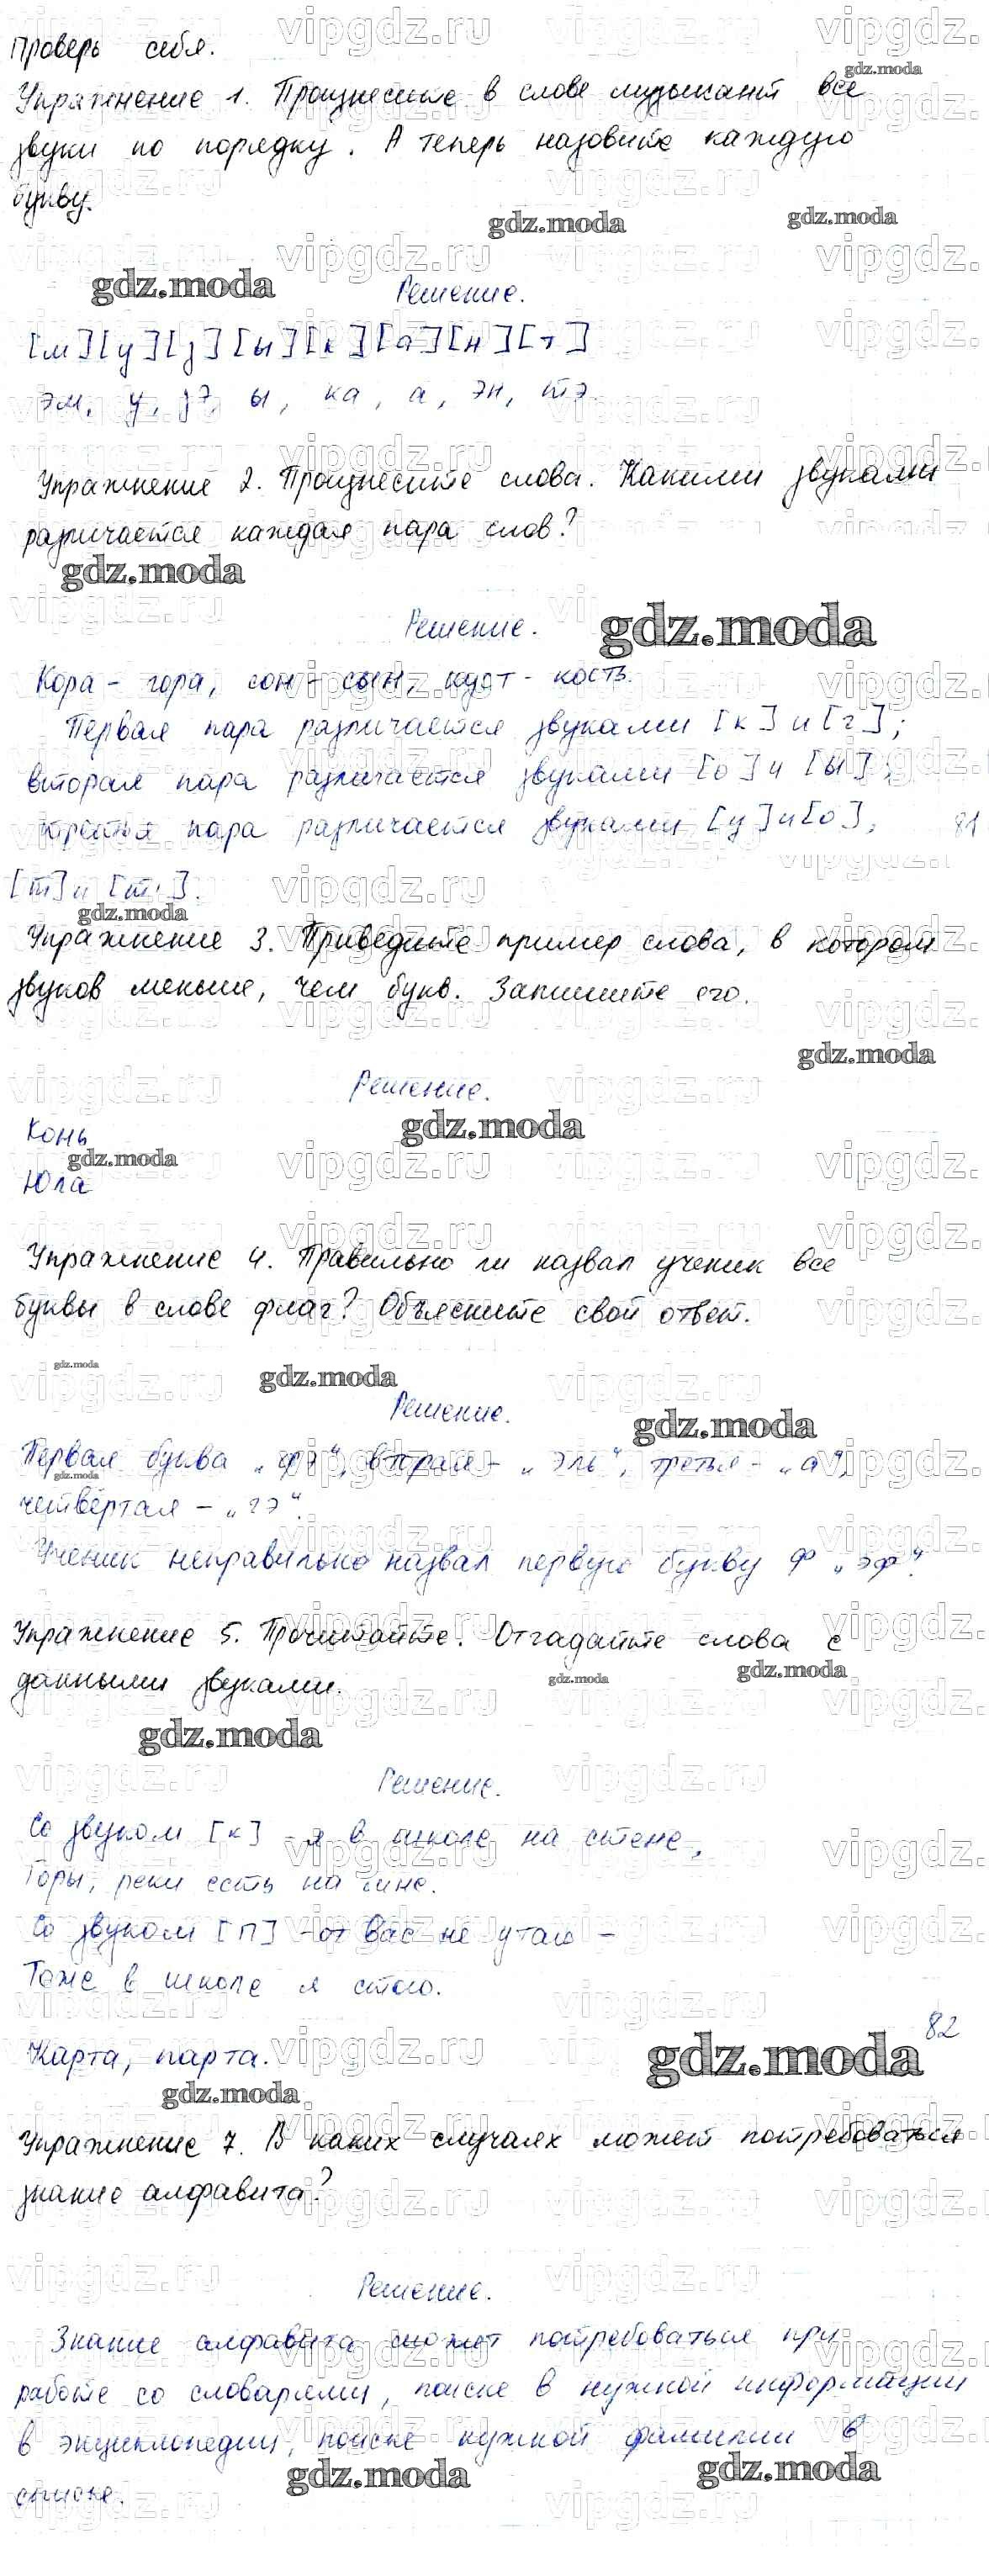 Проверь себя.
Упражнение 1. Произнесите в слове музыкант все
звуки по порядку. А теперь назовите каждую
букву.
Решение.
[м][у][з][ы][к][а][н][т]
эм, у, зэ, ы, ка, а, эн, тэ.
Упражнение 2. Произнесите слова. Какими звуками
различается каждая пара слов?
Решение.
Кора - гора, сон - сын, куст - кость.
Первая пара различается звуками [к] и [г];
вторая пара различается звуками [о] и [ы];
третья пара различается звуками [у] и [о],
81
[т] и [т'].
Упражнение 3. Приведите пример слова, в котором
звуков меньше, чем букв. Запишите его.
Решение.
Конь
Юла
Упражнение 4. Правильно ли назвал ученик все
буквы в слове флаг? Объясните свой ответ.
Решение.
Первая буква „фэ“, вторая - „эль“, третья - „а“,
четвёртая - „гэ“.
Ученик неправильно назвал первую букву ф „эф“.
Упражнение 5. Прочитайте. Отгадайте слова с
данными звуками.
Решение.
Со звуком [к] - я в школе на стене,
Горы, реки есть на мне.
Со звуком [п] - от вас не утаю -
Тоже в школе я стою.
82
Карта, парта.
Упражнение 7. В каких случаях может потребоваться
знание алфавита?
Решение.
Знание алфавита может потребоваться при
работе со словарями, поиске в нужной информации
в энциклопедии, поиске нужной фамилии в
списке.
vipgdz.ru
gdz.moda